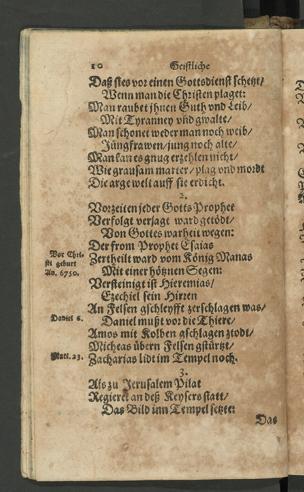 10 Geistliche
Daß sies vor einen Gottsdienst schetzt/
Wenn man die Christen plaget:
Man raubet jhnen Guth vnd Leib/
Mit Tyranney vnd gwalte/
Man schonet weder man noch weib/
Jungfrawen/jung noch alte/
Man kan es gnug erzehlen nicht/
Wie grausam marter/plag vnd mordt
Die arge welt auff sie erdicht.
2.
Vorzeiten jeder Gotts Prophet
Verfolgt versagt ward getödt/
Von Gottes warheit wegen:
Der from Prophet Esaias
Vor Chri-
sti geburt
An. 6750.
Zertheilt ward vom König Manas
Mit einer höltznen Segen:
Versteinigt ist Hieremias/
Ezechiel sein Hirren
An Felsen gschleyfft zerschlagen was/
Daniel 6.
Daniel mußt vor die Thiere/
Amos mit Kolben gschlagen
Micheas übern Felsen gstürtzt/
Matt. 23.
Zacharias lidt im Tempel noch.
3.
Als zu Jerusalem Pilat
Regieret an deß Keysers statt/
Das Bild inn Tempel setzte:
Das